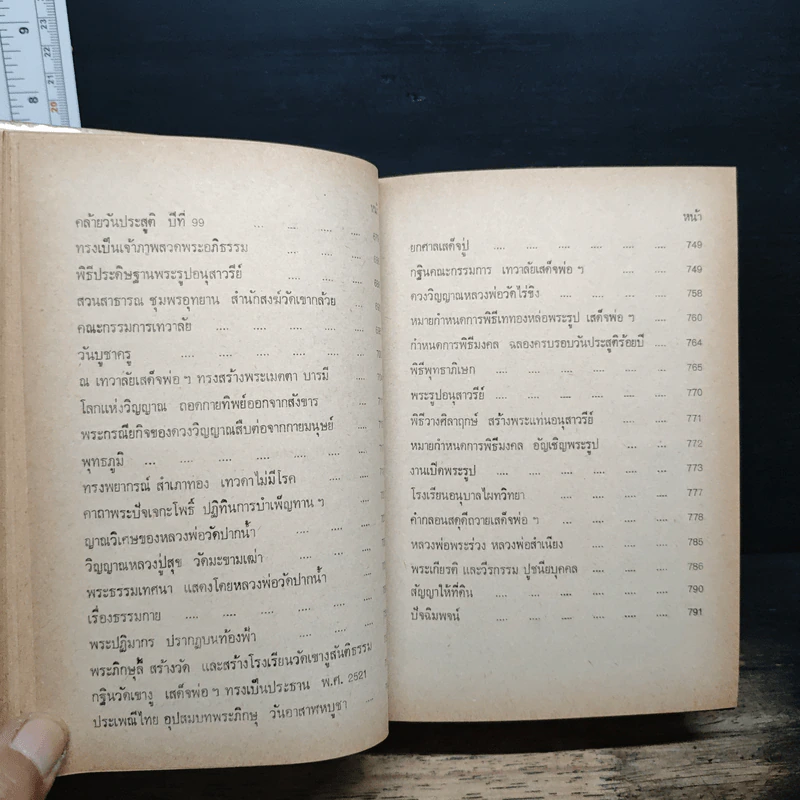 9
8
23
22
21
20
คล้ายวันประสูติ ปีที่ 99 .... .... ....
ทรงเป็นเจ้าภาพสวดพระอภิธรรม .... ....
พิธีประดิษฐานพระรูปอนุสาวรีย์ .... ....
สวนสาธารณ ชุมพรอุทยาน สำนักสงฆ์วัดเขากล้วย
คณะกรรมการเทวาลัย .... .... .... ....
วันบูชาครู .... .... .... .... ....
ณ เทวาลัยเสด็จพ่อ ฯ ทรงสร้างพระเมตตา บารมี
โลกแห่งวิญญาณ ถอดกายทิพย์ออกจากสังขาร
พระกรณียกิจของดวงวิญญาณสืบต่อจากกายมนุษย์
พุทธภูมิ .... .... .... .... .... ....
ทรงพยากรณ์ สำเภาทอง เทวดาไม่มีโรค
คาถาพระปัจเจกะโพธิ์ ปฏิทินการบำเพ็ญทาน ฯ
ญาณวิเศษของหลวงพ่อวัดปากน้ำ .... ....
วิญญาณหลวงปู่สุข วัดมะขามเฒ่า .... ....
พระธรรมเทศนา แสดงโดยหลวงพ่อวัดปากน้ำ
เรื่องธรรมกาย .... .... .... .... ....
พระปฏิมากร ปรากฏบนท้องฟ้า .... ....
พระภิกษุลี สร้างวัด และสร้างโรงเรียนวัดเขางูสันติธรรม
กฐินวัดเขางู เสด็จพ่อ ฯ ทรงเป็นประธาน พ.ศ. 2521
ประเพณีไทย อุปสมบทพระภิกษุ วันอาสาฬหบูชา ....
หน้า
ยกศาลเสด็จปู่ .... .... .... .... .... 749
กฐินคณะกรรมการ เทวาลัยเสด็จพ่อ ฯ .... .... 749
ดวงวิญญาณหลวงพ่อวัดไร่ขิง .... .... .... 758
หมายกำหนดการพิธีเททองหล่อพระรูป เสด็จพ่อ ฯ .... 760
กำหนดการพิธีมงคล ฉลองครบรอบวันประสูติร้อยปี 764
พิธีพุทธาภิเษก .... .... .... .... .... 765
พระรูปอนุสาวรีย์ .... .... .... .... .... 770
พิธีวางศิลาฤกษ์ สร้างพระแท่นอนุสาวรีย์ .... .... 771
หมายกำหนดการพิธีมงคล อัญเชิญพระรูป .... .... 772
งานเปิดพระรูป .... .... .... .... .... 773
โรงเรียนอนุบาลไผทวิทยา .... .... .... .... 777
คำกลอนสดุดีถวายเสด็จพ่อ ฯ .... .... .... .... 778
หลวงพ่อพระร่วง หลวงพ่อสำเนียง .... .... .... 785
พระเกียรติ และวีรกรรม ปูชนียบุคคล .... .... .... 786
สัญญาให้ที่ดิน .... .... .... .... .... 790
ปัจฉิมพจน์ .... .... .... .... .... 791